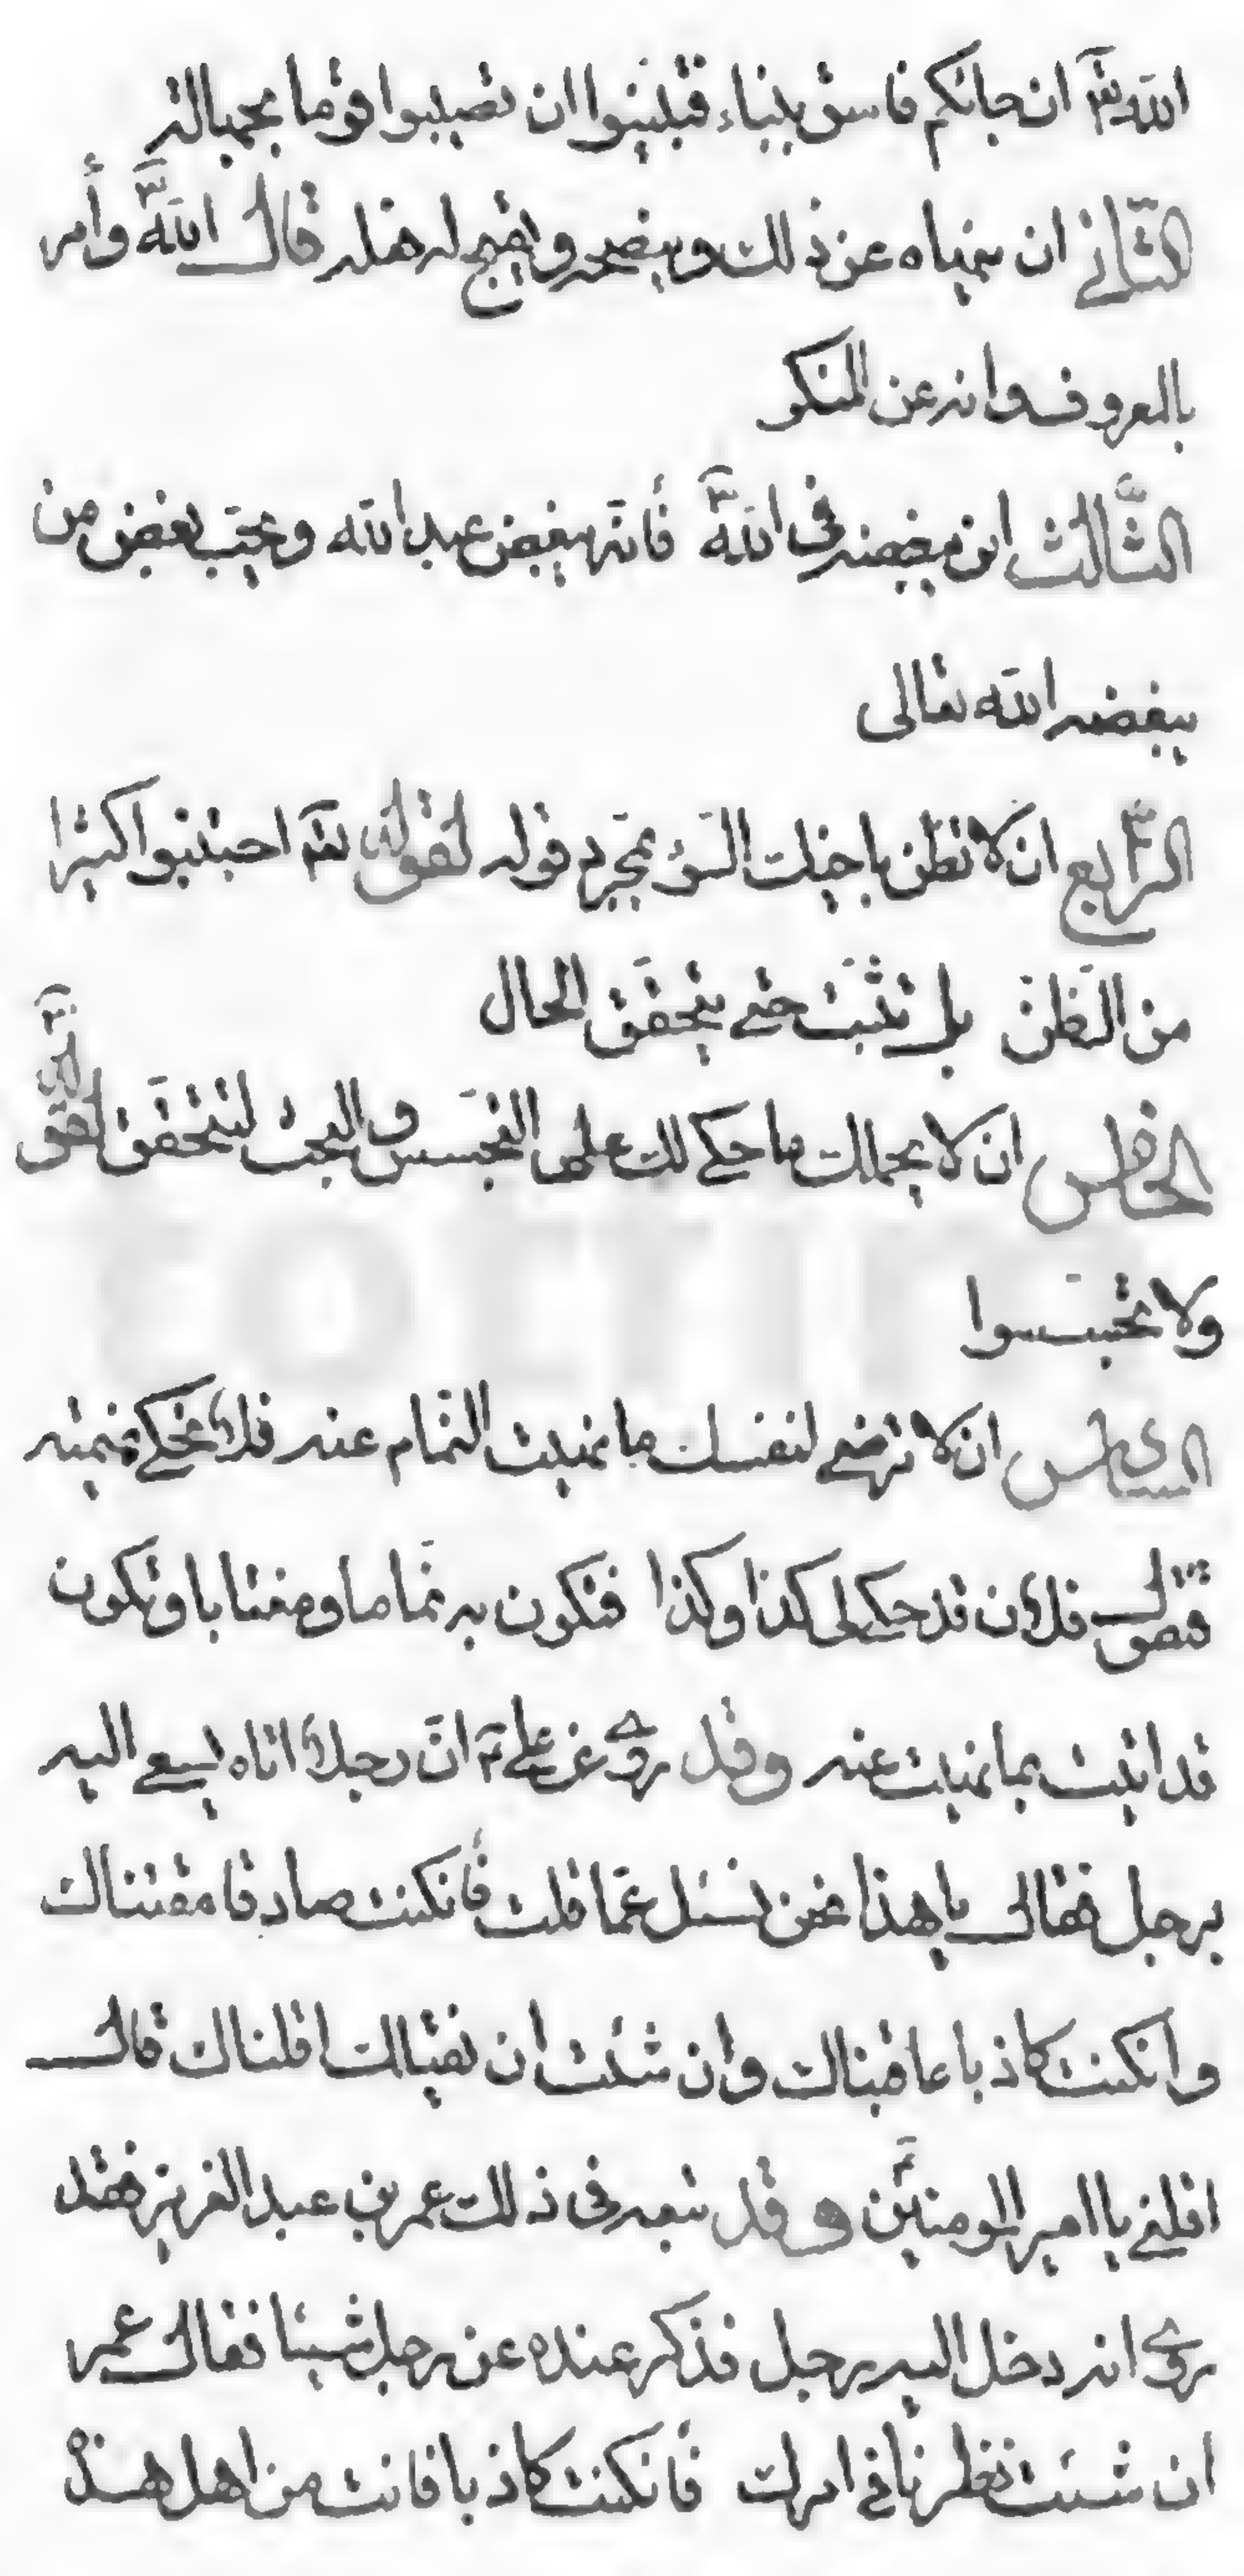 الله تع ان جائكم فاسق بنباء فتبينوا ان تصيبوا قوما بجهالة
الثّاني ان ينهاه عن ذلك وينصحه ويقبح له فعله قال الله تع وأمر
بالمعروف وانه عن المنكر
الثّالث ان يبغضه في الله تع فأنّه بغيض عند الله ويجب بغض من
يبغضه الله تعالى
الرّابع ان لا تظن باخيك السّوء بمجرد قوله لقوله تع اجتنبوا كثيرا
من الظّنّ بل تثبت حتى يتحقّق الحال
الخامس ان لا يحملك ما حكى لك على التجسّس والبحث لتتحقّق لقوله تع
ولا تجسّسوا
السادس ان لا ترضى لنفسك ما نهيت النمّام عنه فلا تحكى نميمته
فتقول فلان قد حكى لى كذا وكذا فتكون به نمّاما ومغتابا وتكون
قد اتيت بما نهيت عنه وقد روى عن على ع انّ رجلا اتاه يسعى اليه
برجل فقال يا هذا نحن نسئل عمّا قلت فأنكنت صادقا مقتناك
وانكنت كاذبا عاقبناك وان شئت ان نقيلك اقلناك قال
اقلنى يا امير المومنين وقد تبعه في ذلك عمر بن عبد العزيز فقد
روى انه دخل اليه رجل فذكر عنده عن رجل شيئا فقال عمر
ان شئت نظرنا في امرك فأنكنت كاذبا فانت من اهل هذه